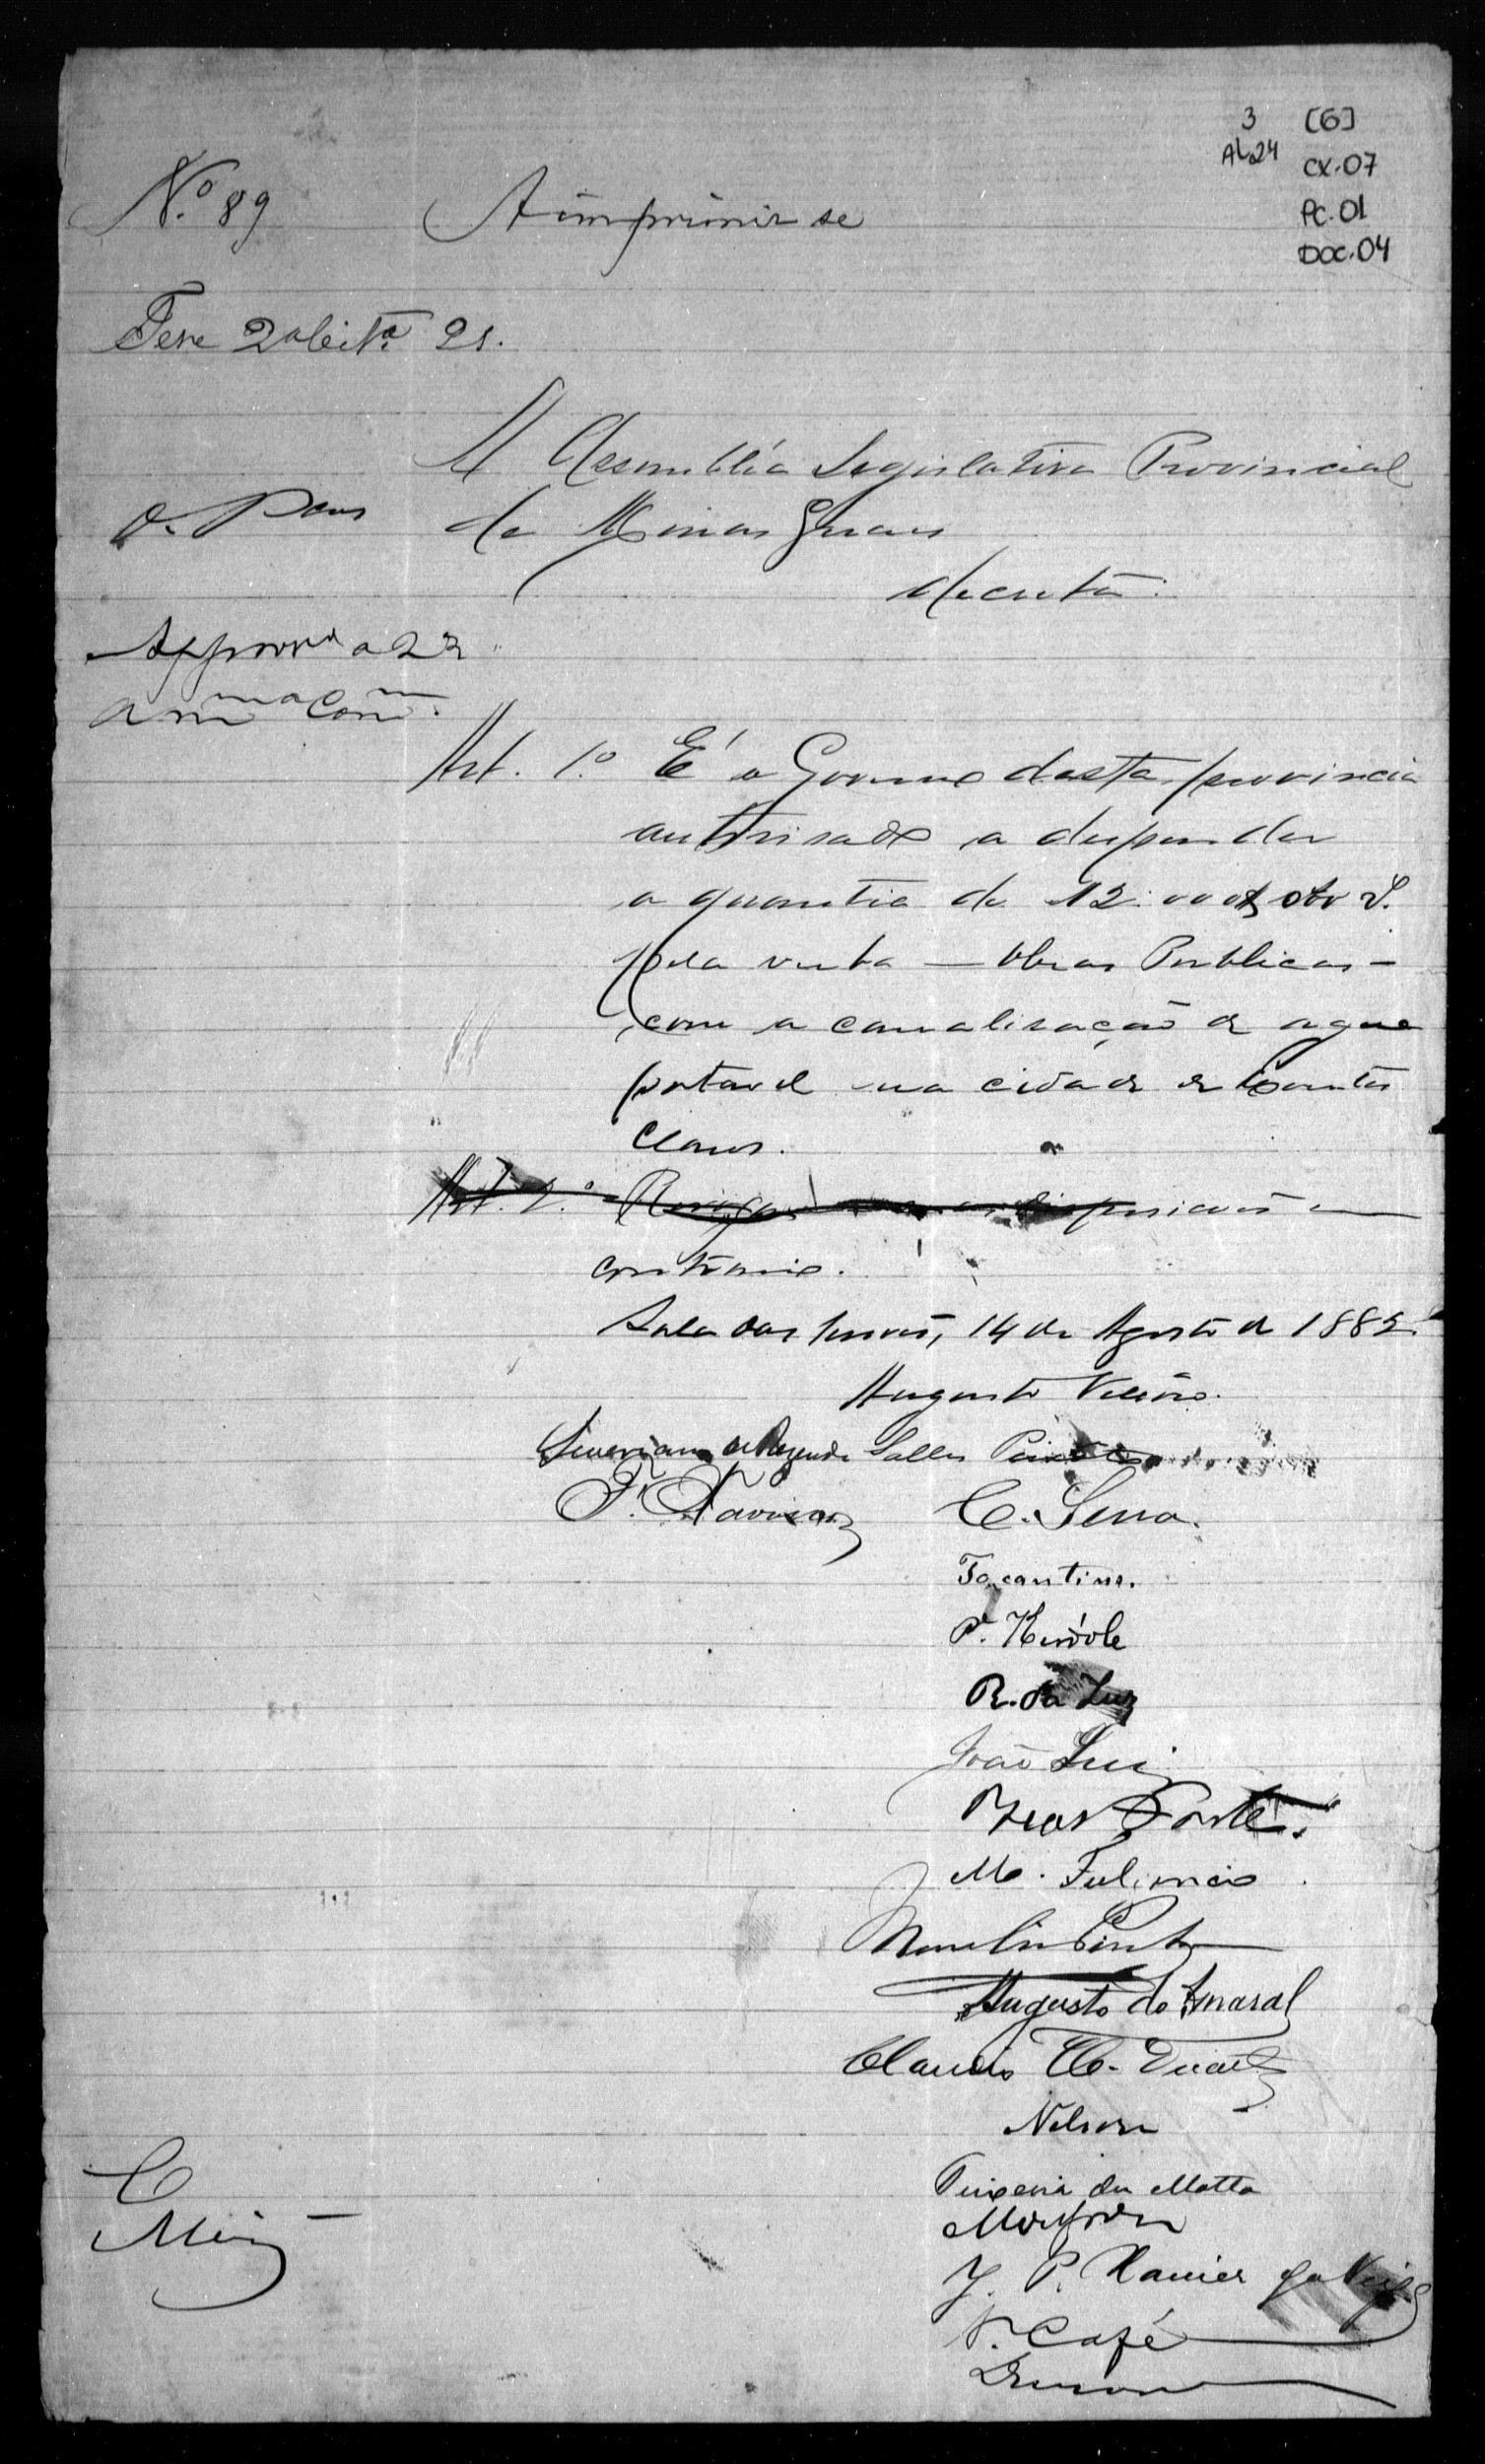 3 [6]
AL24 CX.07
PC.01
DOC.04
N.º 89 A imprimir se
Teve 2ª leit.ª 21.
A Assembléa Legislativa Provincial
de Minas Geraes
decreta:
Approv.da a 22
Art. 1.º É o Governo desta provincia
autorisado a despender
a quantia de 12:000$000 rs.
pela verba — Obras Publicas —
com a canalisação de agua
potavel na cidade de Montes
Claros.
Art. 2.º Revogadas as disposições em
contrario.
Sala das sessões, 14 de Agosto de 1882.
Augusto
Severiano de Rezende Salles Peixoto
F. Tavares C. Senna.
Tocantins.
P. Kerdole
R. da Luz
João Luiz
Bias Fortes.
M. Fulgencio
Pinto
Augusto do Amaral
Claudio Duarte
Nelson
Teixeira da Motta
J. P. Xavier da Veiga
N. Café